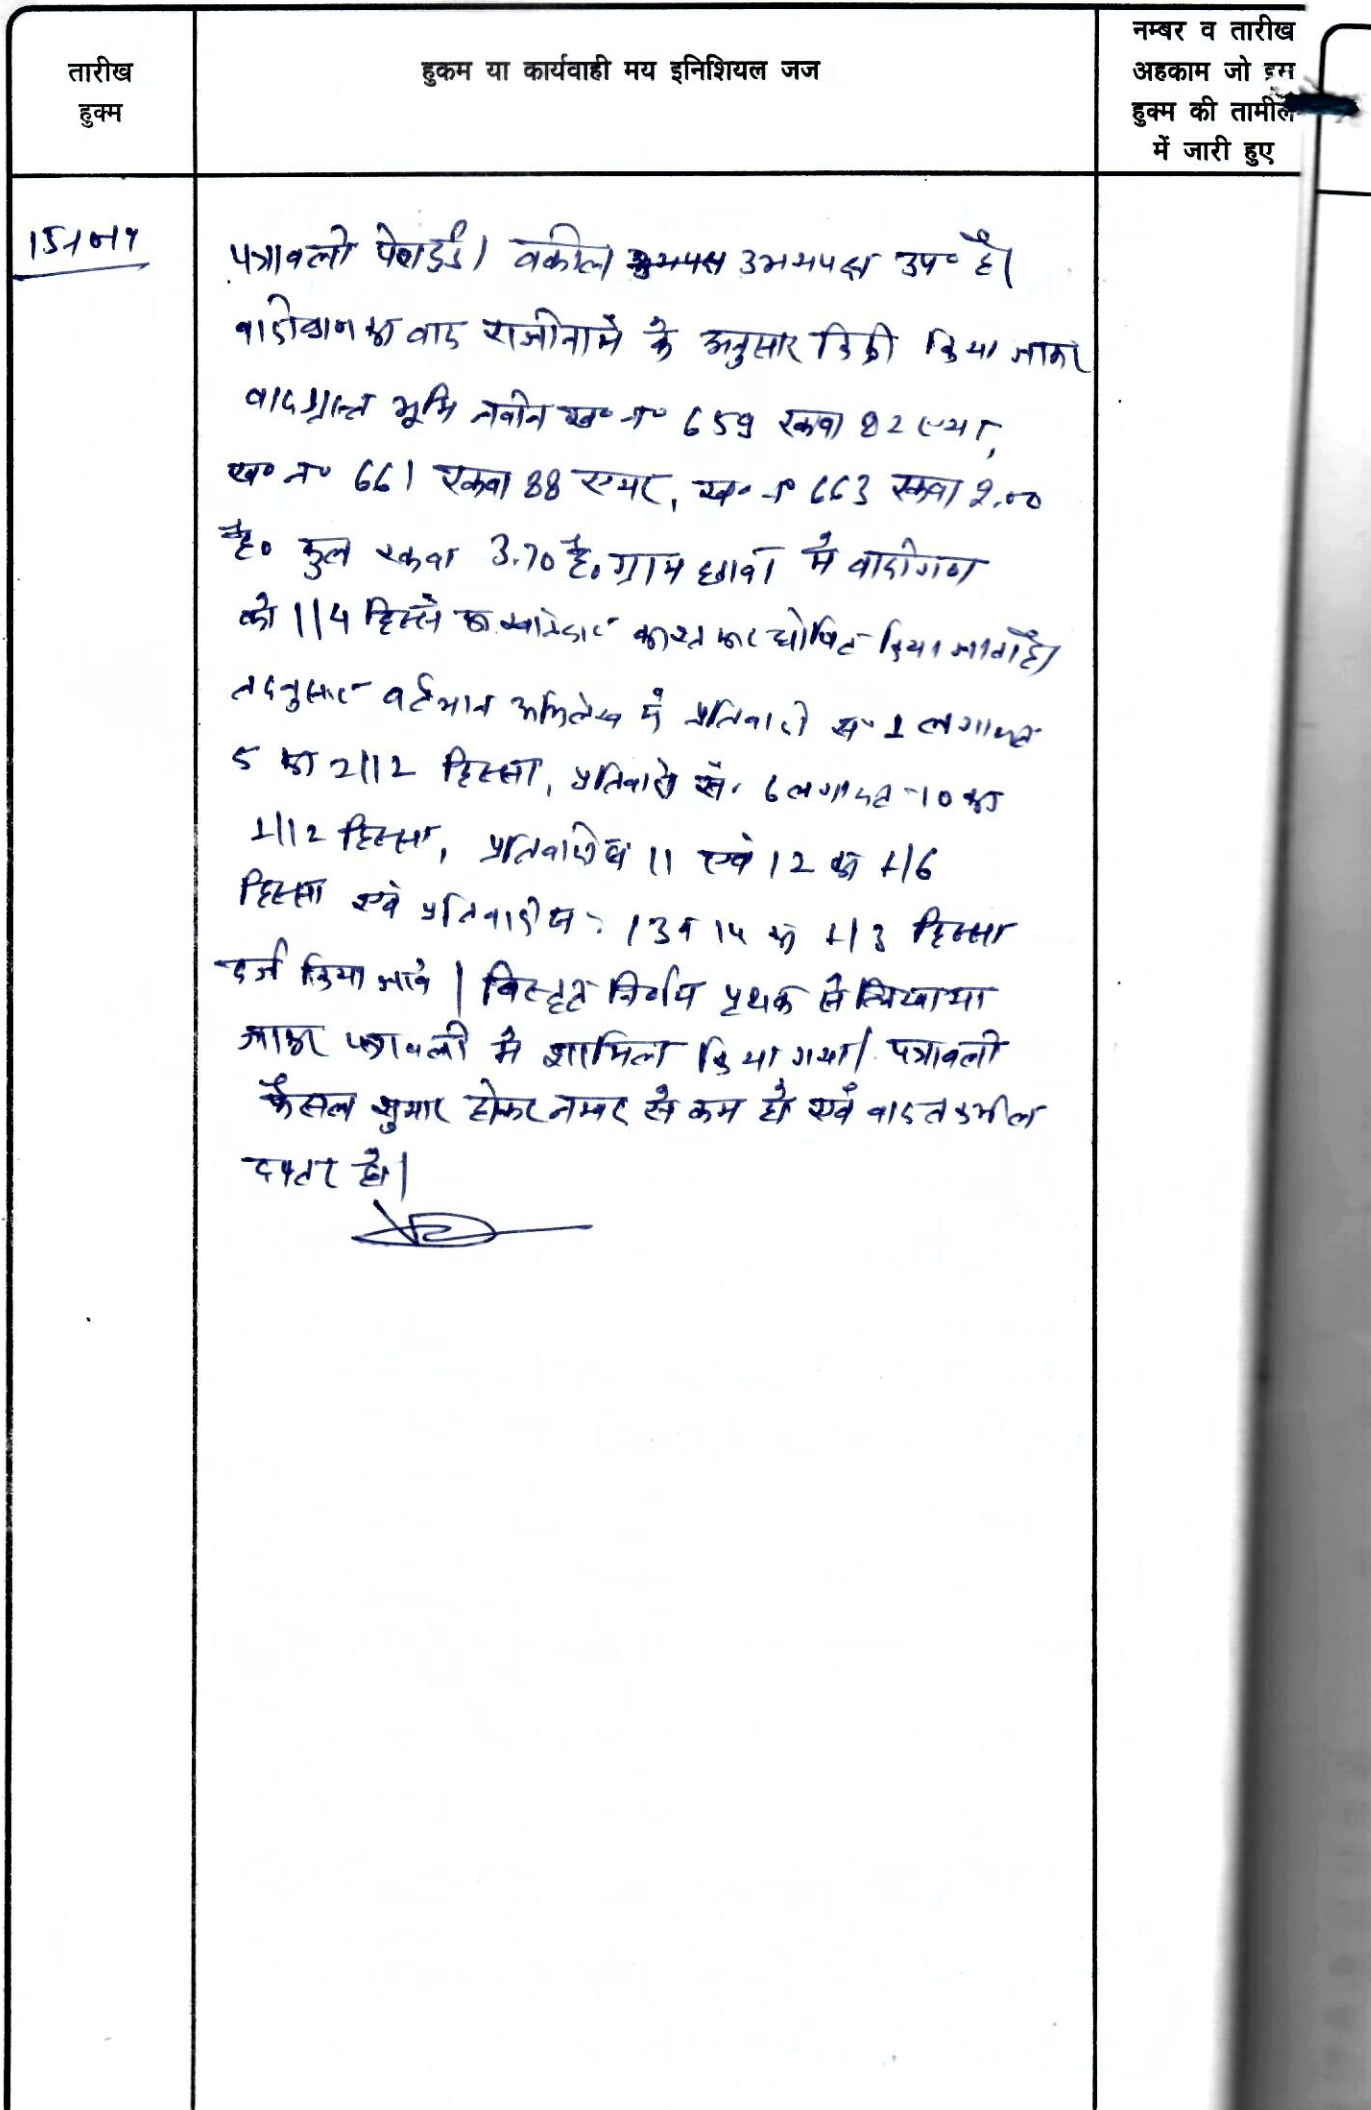 तारीख
हुक्म
हुकम या कार्यवाही मय इनिशियल जज
नम्बर व तारीख
अहकाम जो इस
हुक्म की तामील
में जारी हुए
पत्रावली पेश हुई। वकील उभयपक्ष उप० है।
वादीगण का वाद राजीनामे के अनुसार डिक्री किया जाकर
वादग्रस्त भूमि नवीन ख० न० 659 रकबा 82 एयर,
ख० न० 661 रकबा 88 एयर, ख० न० 663 रकबा 2.00
है० कुल रकबा 3.70 है० ग्राम में वादीगण
को 1/4 हिस्से का खातेदार काश्तकार घोषित किया जाता है।
तदनुसार वर्तमान अभिलेख में प्रतिवादी सं० 1 लगायत
5 का 2/12 हिस्सा, प्रतिवादी सं० 6 लगायत 10 का
1/12 हिस्सा, प्रतिवादी सं 11 एवं 12 का 1/6
हिस्सा एवं प्रतिवादी सं० 13 व 14 का 1/3 हिस्सा
दर्ज किया जावे। विस्तृत निर्णय पृथक से लिखाया
जाकर पत्रावली में शामिल किया गया। पत्रावली
फैसल शुमार होकर नम्बर से कम हो एवं वाद तकमील
दफ्तर हो।